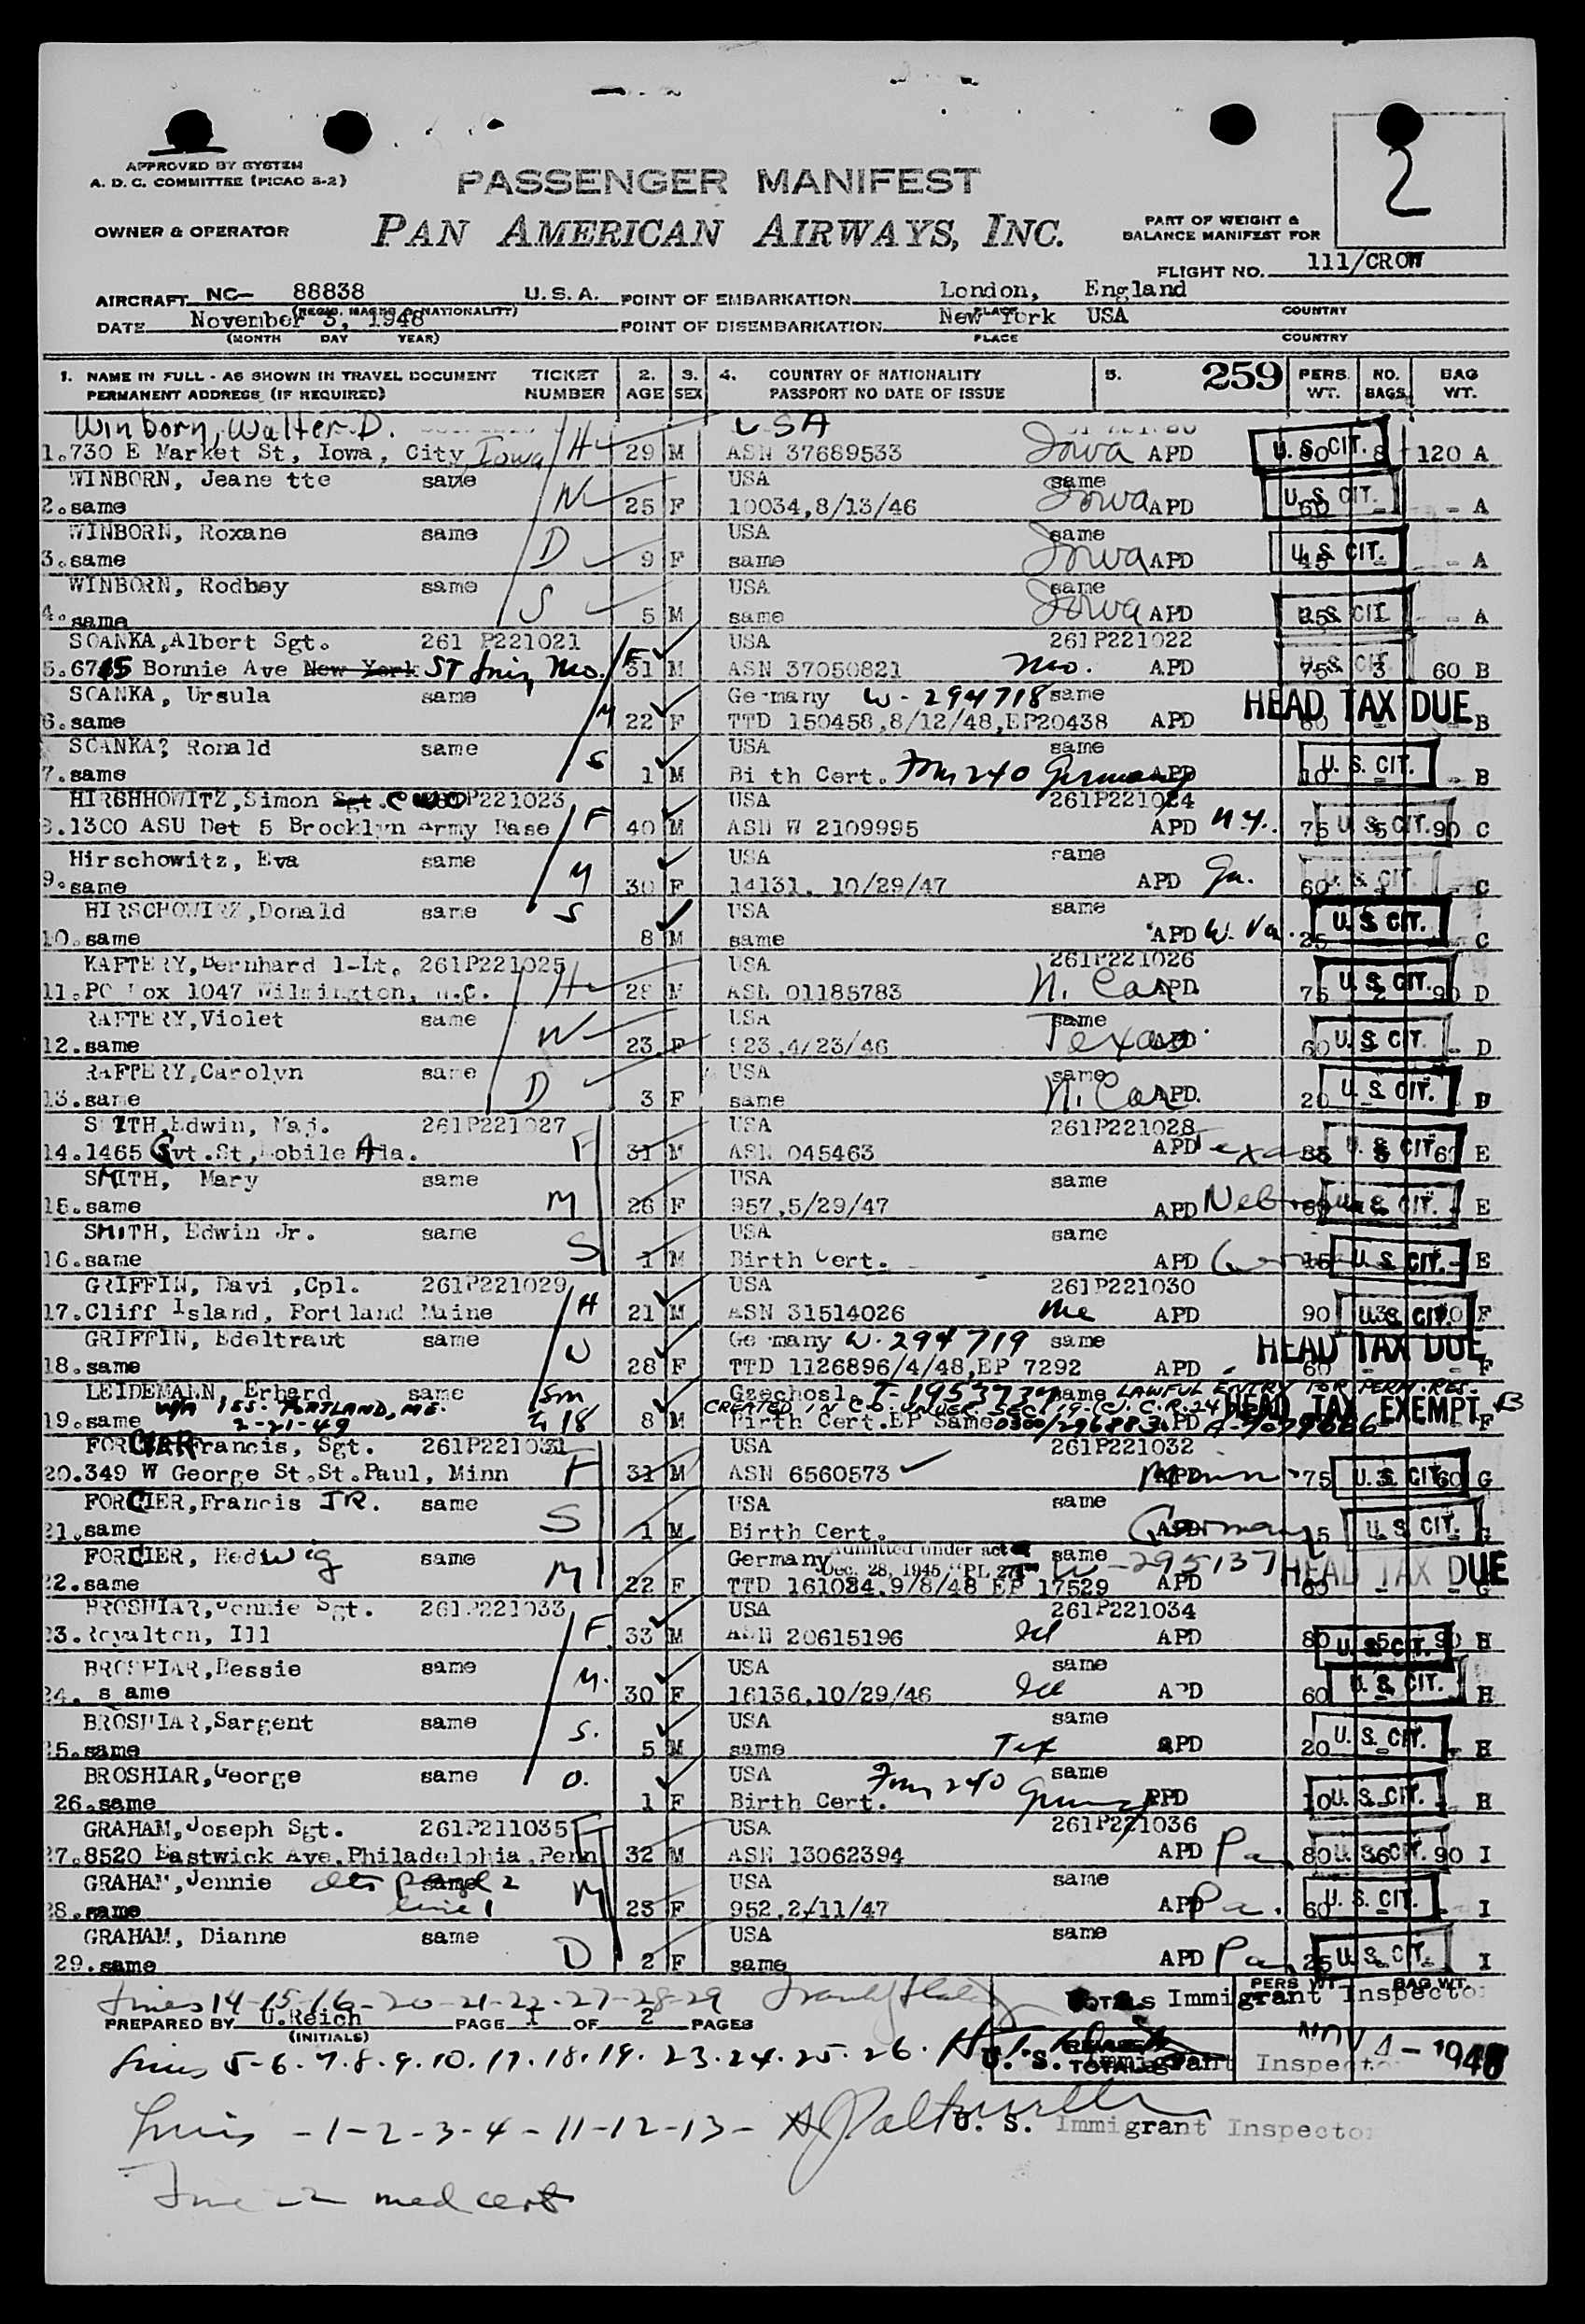 2
APPROVED BY SYSTEM
A. D. C. COMMITTEE (PICAO S-2)
PASSENGER MANIFEST
OWNER & OPERATOR
PAN AMERICAN AIRWAYS, INC.
PART OF WEIGHT &
BALANCE MANIFEST FOR
FLIGHT NO. 111/CROW
AIRCRAFT NC- 88838 U.S.A. POINT OF EMBARKATION London, England
DATE November 3, 1948 POINT OF DISEMBARKATION New York USA
(MONTH DAY YEAR) PLACE COUNTRY
1. NAME IN FULL - AS SHOWN IN TRAVEL DOCUMENT TICKET 2. 3. 4. COUNTRY OF NATIONALITY 5. 259 PERS. NO. BAG
PERMANENT ADDRESS (IF REQUIRED) NUMBER AGE SEX PASSPORT NO DATE OF ISSUE WT. BAGS WT.
Winborn, Walter D. USA
1.730 E Market St, Iowa, City Iowa H 29 M ASN 37689533 Iowa APD U.S. CIT. 8 120 A
WINBORN, Jeane tte same USA same
2.same W 25 F 10034,8/13/46 Iowa APD 60 U.S. CIT. - - A
WINBORN, Roxane same USA same
3.same D 9 F same Iowa APD 45 U.S. CIT. - - A
WINBORN, Rodney same USA same
4.same S 5 M same Iowa APD U.S. CIT - A
SCANKA,Albert Sgt. 261 P221021 USA 261P221022
5.6715 Bonnie Ave New York ST Louis, Mo. F 31 M ASN 37050821 Mo. APD 75 U.S. CIT 3 60 B
SCANKA, Ursula same Germany W-294718 same
6.same M 22 F TTD 150458,8/12/48,EP20438 APD HEAD TAX DUE 60 - B
SCANKA, Ronald same USA same
7.same S 1 M Bi th Cert. Form 240 Germany APD 10 U.S. CIT. - B
HIRSHHOWITZ,Simon Sgt. CWO P221023 USA 261P221024
8.1300 ASU Det 5 Brooklyn Army Base F 40 M ASN W 2109995 APD N.Y. 75 U.S. CIT. 5 90 C
Hirschowitz, Eva same USA same
9.same M 30 F 14131. 10/29/47 APD Ga. 60 U.S. CIT - C
HIRSCHOWITZ,Donald same S USA same
10.same 8 M same APD W. Va. 25 U.S. CIT. C
RAFTERY,Bernhard 1-Lt. 261P221025 USA 261P221026
11.PO Box 1047 Wilmington, N.C. H 28 M ASN 01185783 N. Car APD. 75 U.S. CIT. 2 90 D
RAFTERY,Violet same USA same
12.same W 23 F 923,4/23/46 Texas APD 60 U.S. CIT. - D
RAFTERY,Carolyn same USA same
13.same D 3 F same N. Car APD. 20 U.S. CIT. D
SMITH,Edwin, Maj. 261P221027 USA 261P221028
14.1465 Gvt.St,Mobile Ala. F 31 M ASN 045463 APD Texas 85 U.S. CIT. 60 E
SMITH, Mary same USA same
15.same M 26 F 957,5/29/47 APD U.S. CIT. - E
SMITH, Edwin Jr. same USA same
16.same S 1 M Birth Cert. APD 15 U.S. CIT. - E
GRIFFIN, Davi ,Cpl. 261P221029 USA 261P221030
17.Cliff Island, Portland Maine H 21 M ASN 31514026 Me APD 90 U.S. CIT F
GRIFFIN, Edeltraut same Germany W-294719 same
18.same W 28 F TTD 1126896/4/48,EP 7292 APD HEAD TAX DUE 60 - F
LEIDEMANN, Erhard same Czechosl. T-1953737 same LAWFUL ENTRY FOR PERM. RES.
19.same ISS. PORTLAND, ME. 2-21-49 8 M CREATED IN C.O. UNDER SEC. Birth Cert.EP Same 0300/296883 APD HEAD TAX EXEMPT F
FORCIER Francis, Sgt. 261P221031 USA 261P221032
20.349 W George St.St.Paul, Minn F 31 M ASN 6560573 Minn APD 75 U.S. CIT. 3 60 G
FORCIER,Francis JR. same USA same
21.same S 1 M Birth Cert. Germany APD 15 U.S. CIT. G
FORCIER, Hedwig same Germany Admitted under act Dec. 28, 1945 "PL 271" same W-295137
22.same M 22 F TTD 161084,9/8/48 EP 17529 APD HEAD TAX DUE 60 G
BROSHIAR,Jennie Sgt. 261P221033 USA 261P221034
23.Royalton, Ill F 33 M ASN 20615196 Ill APD 80 U.S. CIT. 5 90 H
BROSHIAR,Bessie same USA same
24. s ame M. 30 F 16136,10/29/46 Ill APD 60 U.S. CIT. H
BROSHIAR,Sargent same USA same
25.same S. 5 M same Tex APD 20 U.S. CIT. - H
BROSHIAR,George same USA Form 240 same
26.same D. 1 F Birth Cert. Germany APD 10 U.S. CIT. H
GRAHAM,Joseph Sgt. 261P211035 USA 261P221036
27.8520 Eastwick Ave,Philadelphia,Penn F 32 M ASN 13062394 APD Pa 80 U.S. CIT. 6 90 I
GRAHAM,Jennie same page 2 USA same
28.same line 1 M 23 F 952,2/11/47 APD Pa. 60 U.S. CIT. - I
GRAHAM, Dianne same USA same
29.same D 2 F same APD Pa 25 U.S. CIT. I
Lines 14-15-16-20-21-22-27-28-29 TOTALS Immigrant Inspector PERS WT. BAG WT.
PREPARED BY U.Reich PAGE 1 OF 2 PAGES
(INITIALS)
Lines 5-6-7-8-9-10-17-18-19-23-24-25-26. U. S. Immigrant Inspector NOV 4-1948
TOTALS
Lines -1-2-3-4-11-12-13- U. S. Immigrant Inspector
med cert